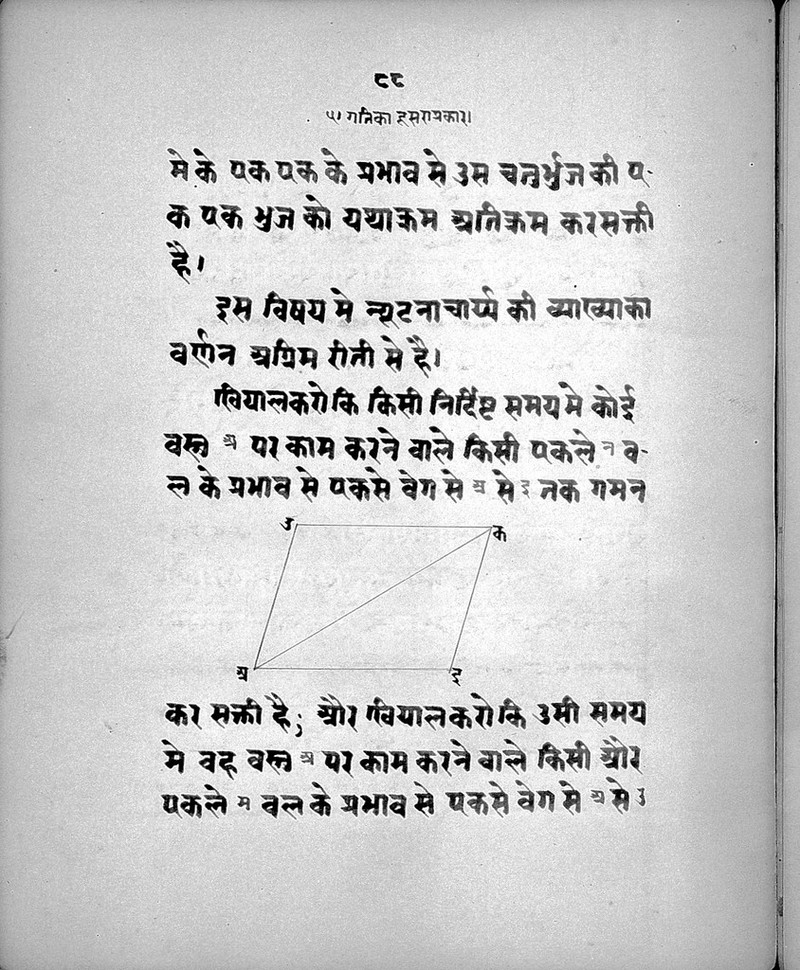 ८८
५। गतिका दूसराप्रकार।
मे के एक एक के प्रभाव से उस चतुर्भुज की ए-
क एक भुज को यथाक्रम अतिक्रम करसक्ती
है।
इस विषय मे न्यूटनाचार्य्य की व्याख्याका
वर्णन अग्रिम रीती से है।
खियालकरोकि किसी निर्दिष्ट समयमे कोई
वस्तु अ पर काम करने वाले किसी एकले न व-
ल के प्रभाव से एकसे वेग से अ से इ तक गमन
उ क
अ इ
कर सक्ती है; और खियालकरोकि उसी समय
मे वह वस्तु अ पर काम करने वाले किसी और
एकले म वल के प्रभाव से एकसे वेग से अ से उ